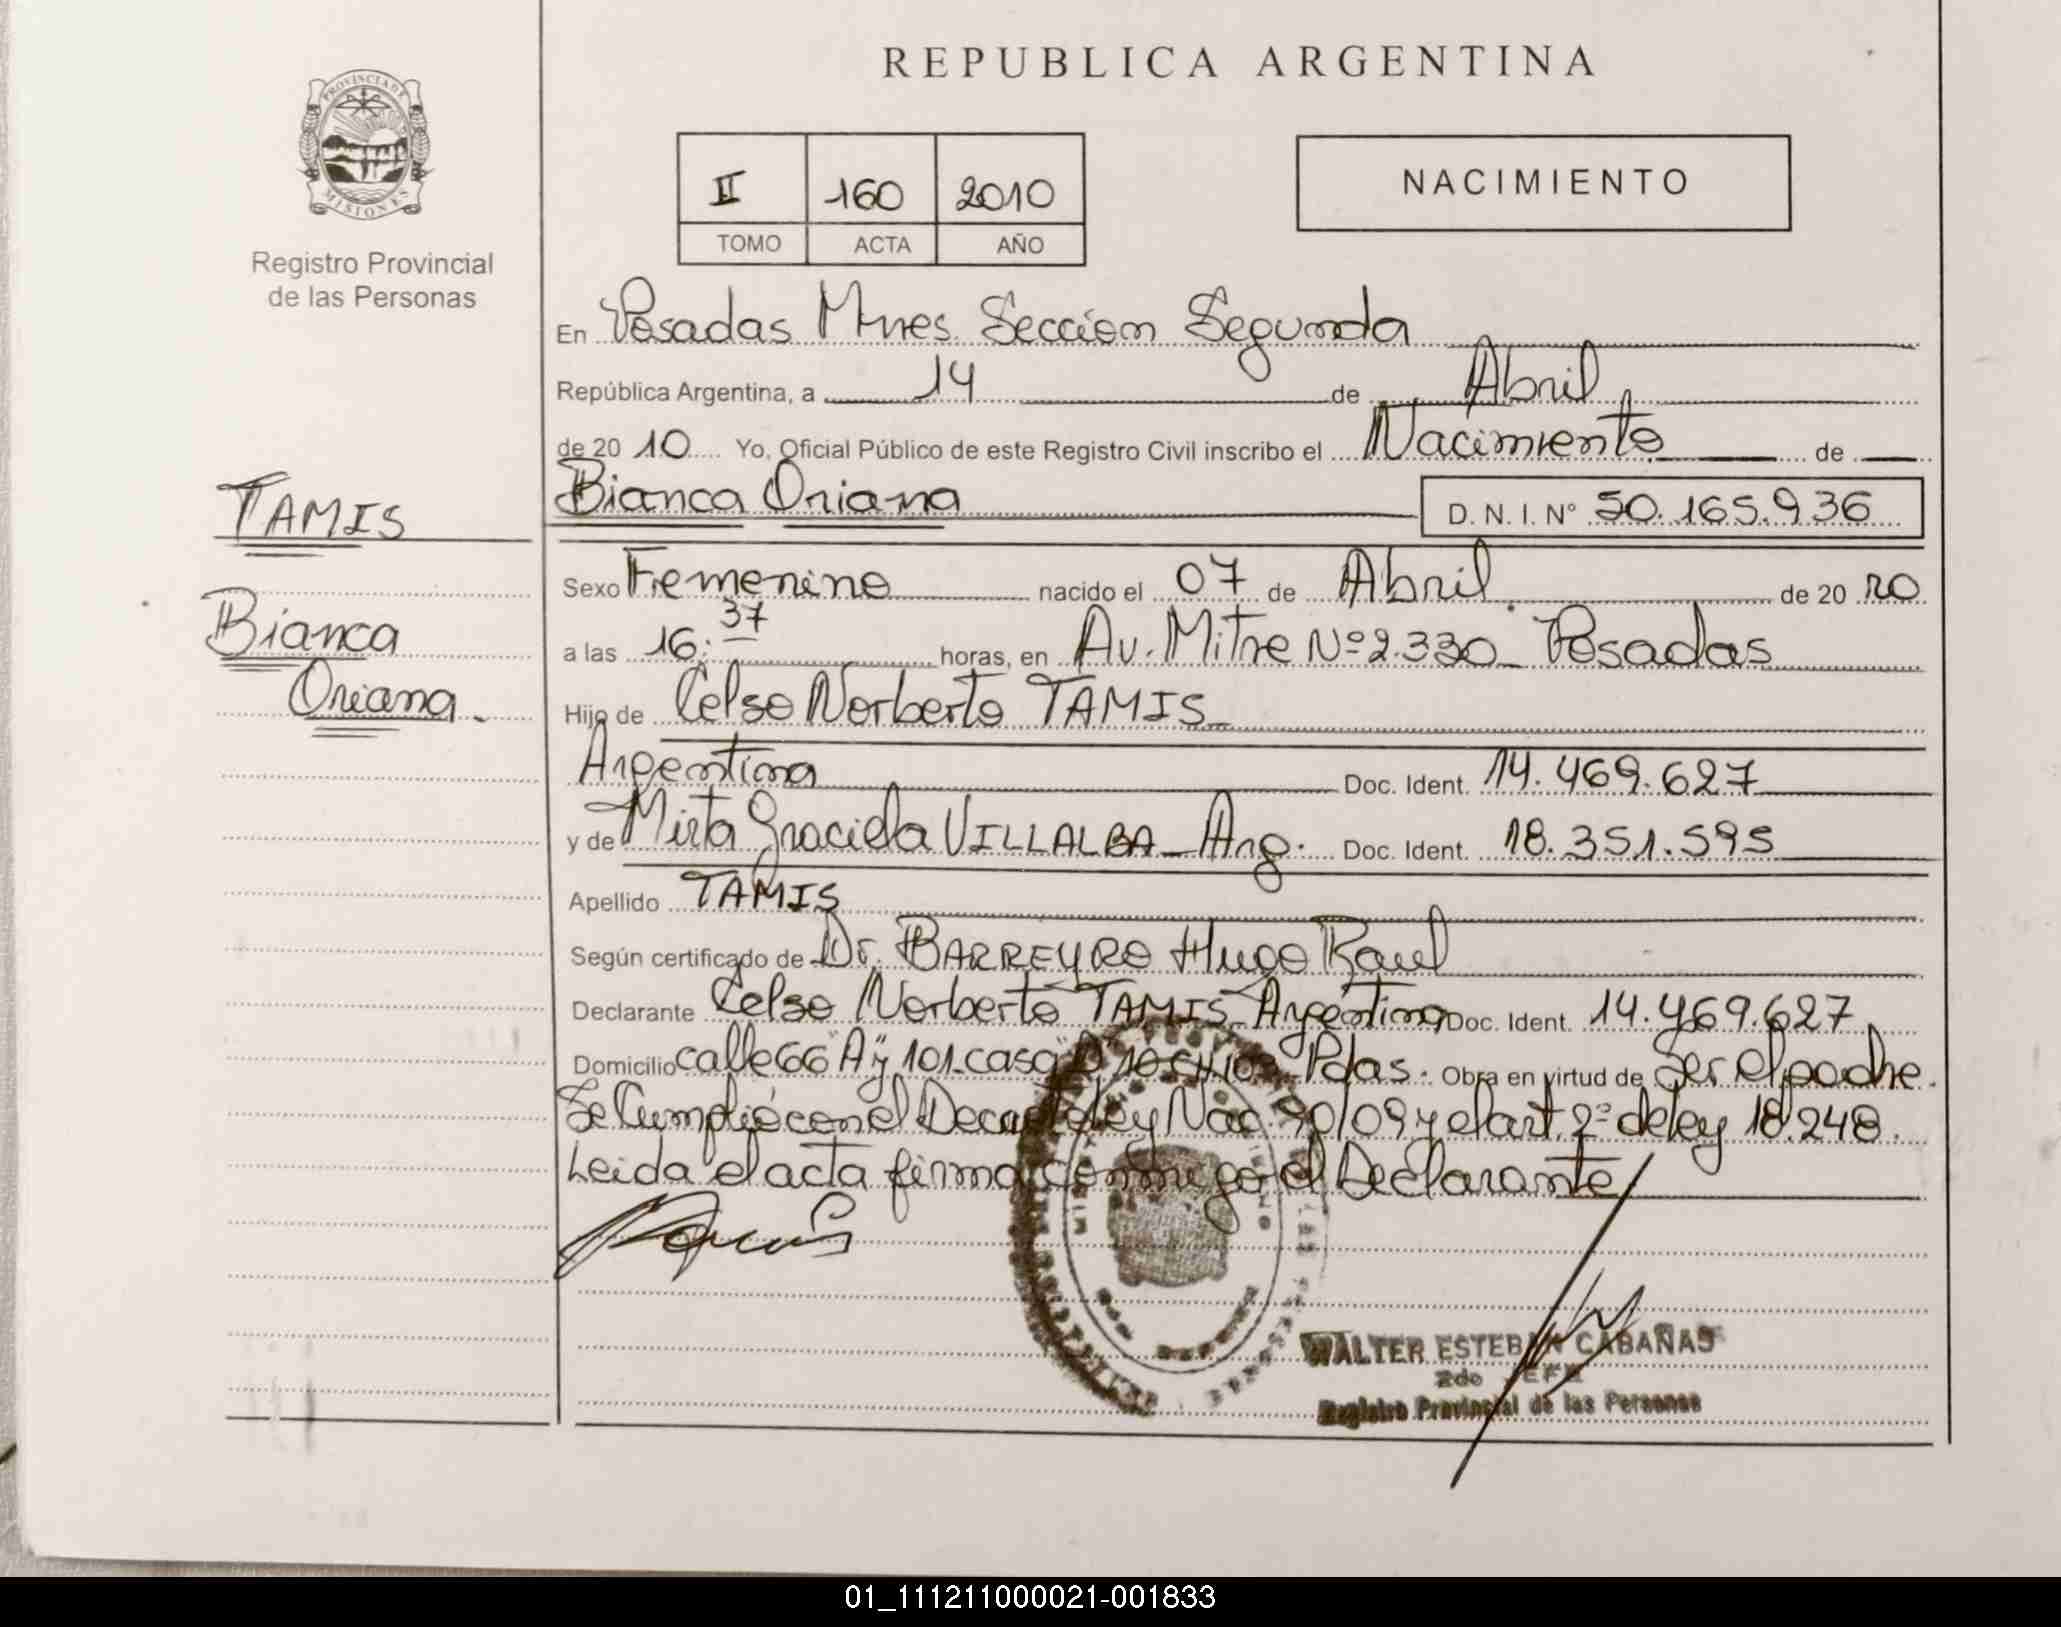 REPUBLICA ARGENTINA
PROVINCIA DE
MISIONES
Registro Provincial
de las Personas
II 160 2010
TOMO ACTA AÑO
NACIMIENTO
En Posadas Mnes. Sección Segunda
República Argentina, a 14 de Abril
de 20 10 Yo, Oficial Público de este Registro Civil inscribo el Nacimiento de
TAMIS
Bianca
Oriana.
Bianca Oriana D. N. I. N° 50.165.936
Sexo Femenino nacido el 07 de Abril de 20 10
a las 16:37 horas, en Av. Mitre Nº 2.330 Posadas
Hijo de Celso Norberto TAMIS
Argentina Doc. Ident. 14.469.627
y de Mirta Graciela VILLALBA - Arg. Doc. Ident. 18.351.595
Apellido TAMIS
Según certificado de Dr. BARREYRO Hugo Raul
Declarante Celso Norberto TAMIS - Argentina Doc. Ident. 14.469.627
Domicilio calle 66 "A" y 101 - casa 10 Pdas. Obra en virtud de Ser el padre.
Se Cumplió con el Ley Nac. 90/09 y el art. 2º de ley 18.248.
Leida el acta firma conmigo el Declarante
WALTER ESTEBAN CABAÑAS
2do JEFE
Registro Provincial de las Personas
01_111211000021-001833